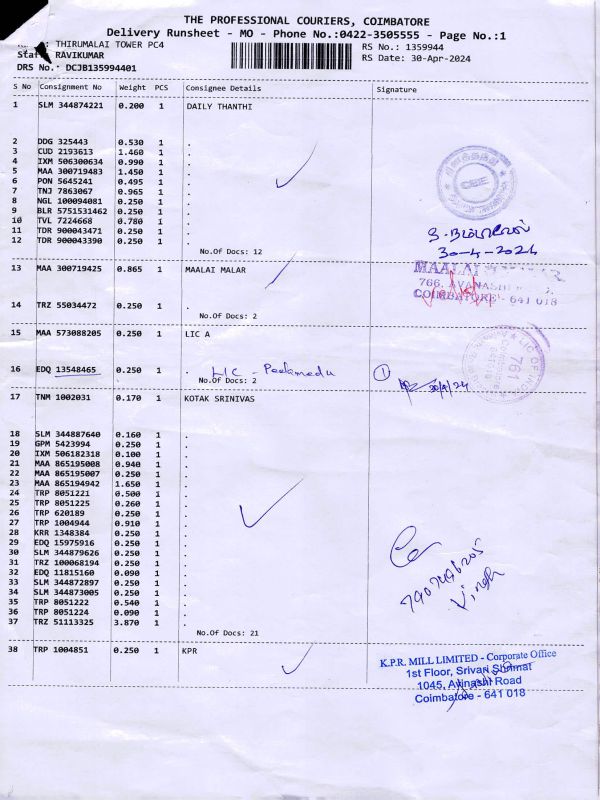 THE PROFESSIONAL COURIERS, COIMBATORE
Delivery Runsheet - MO - Phone No.:0422-3505555 - Page No.:1
THIRUMALAI TOWER PC4 RS No.: 1359944
RAVIKUMAR RS Date: 30-Apr-2024
DRS No.: DCJB135994401
S No Consignment No Weight PCS Consignee Details Signature
1 SLM 344874221 0.200 1 DAILY THANTHI
2 DDG 325443 0.530 1 .
3 CUD 2193613 1.460 1 .
4 IXM 506300634 0.990 1 .
5 MAA 300719483 1.450 1 .
6 PON 5645241 0.495 1 .
7 TNJ 7863067 0.965 1 .
8 NGL 100094081 0.250 1 .
9 BLR 5751531462 0.250 1 .
10 TVL 7224668 0.780 1 .
11 TDR 900043471 0.250 1 .
12 TDR 900043390 0.250 1 .
No.Of Docs: 12
CBE
30-4-2024
13 MAA 300719425 0.865 1 MAALAI MALAR
14 TRZ 55034472 0.250 1 .
No.Of Docs: 2
MAALAI
766, AVANASHI
COIMBATORE - 641 018
15 MAA 573088205 0.250 1 LIC A
16 EDQ 13548465 0.250 1 . LIC - Peelamedu 1
No.Of Docs: 2
30/4/24
LIC OF
761
17 TNM 1002031 0.170 1 KOTAK SRINIVAS
18 SLM 344887640 0.160 1 .
19 GPM 5423994 0.250 1 .
20 IXM 506182318 0.100 1 .
21 MAA 865195008 0.940 1 .
22 MAA 865195007 0.250 1 .
23 MAA 865194942 1.650 1 .
24 TRP 8051221 0.500 1 .
25 TRP 8051225 0.260 1 .
26 TRP 620189 0.250 1 .
27 TRP 1004944 0.910 1 .
28 KRR 1348384 0.250 1 .
29 EDQ 15975916 0.250 1 .
30 SLM 344879626 0.250 1 .
31 TRZ 100068194 0.250 1 .
32 EDQ 11815160 0.090 1 .
33 SLM 344872897 0.250 1 .
34 SLM 344873005 0.250 1 .
35 TRP 8051222 0.540 1 .
36 TRP 8051224 0.090 1 .
37 TRZ 51113325 3.870 1 .
No.Of Docs: 21
38 TRP 1004851 0.250 1 KPR
K.P.R. MILL LIMITED - Corporate Office
1st Floor, Srivari Shrimat
1045, Avinashi Road
Coimbatore - 641 018